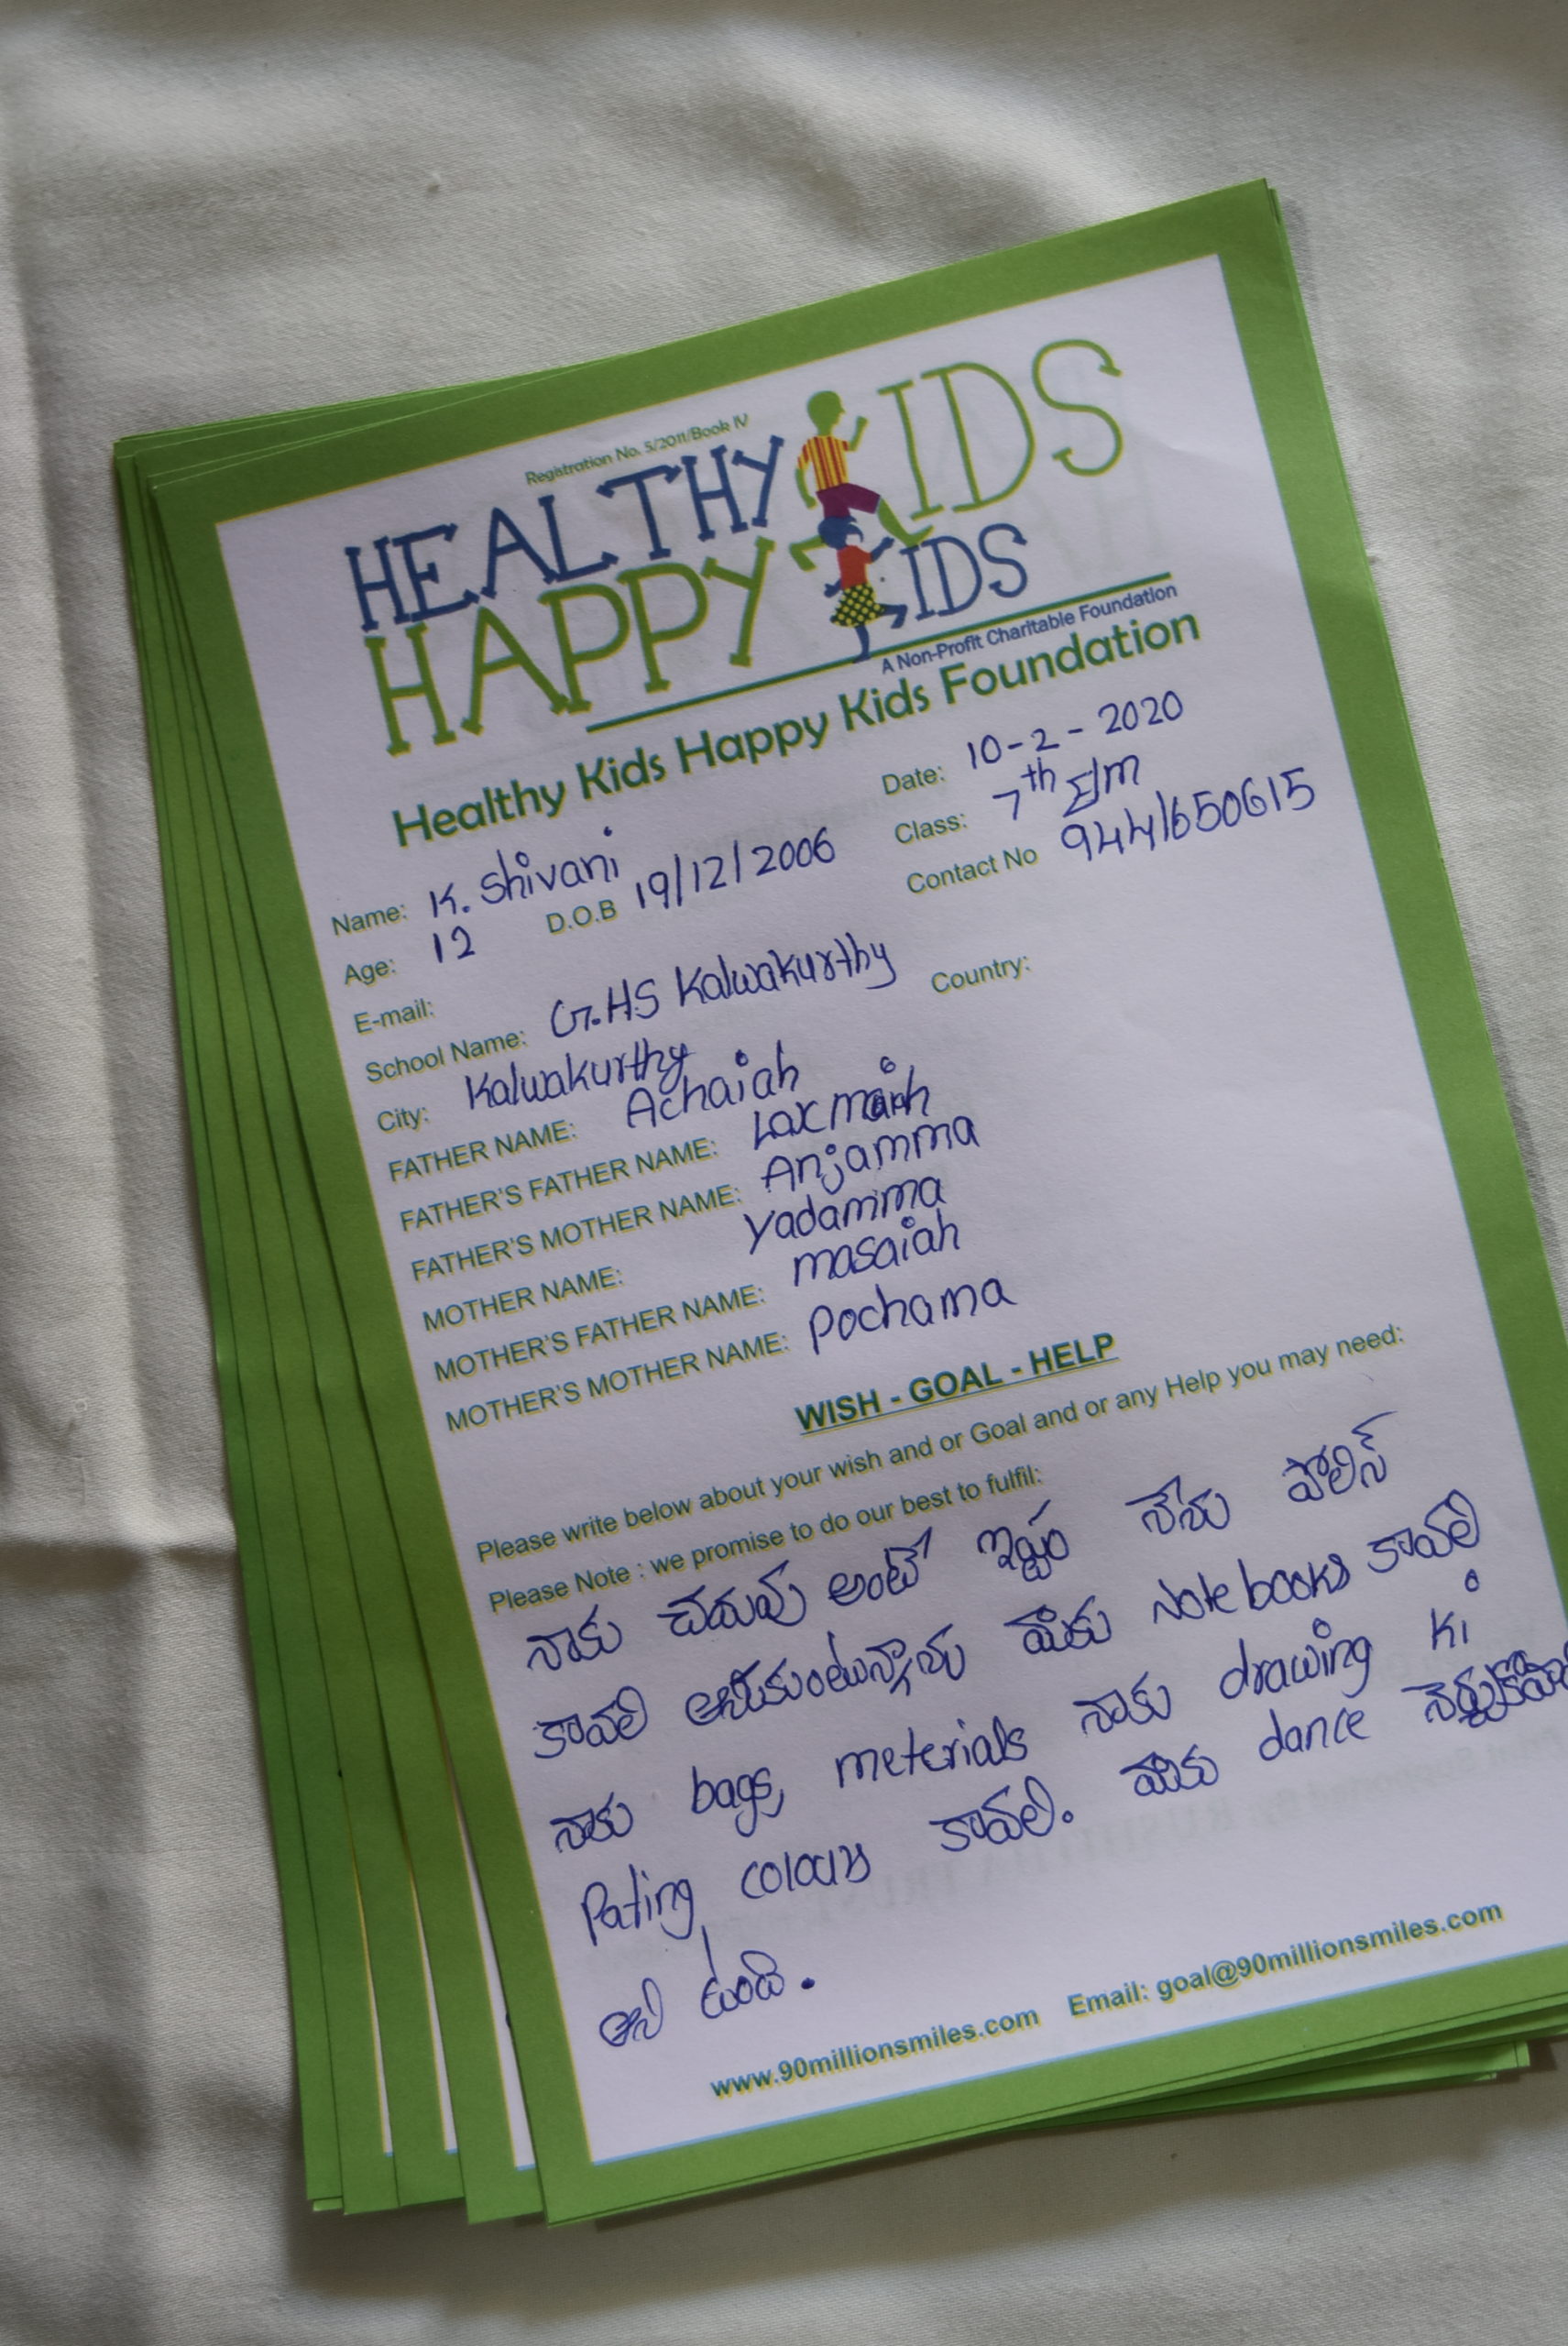 Registration No. 5/2011/Book IV
HEALTHY KIDS
HAPPY KIDS
A Non-Profit Charitable Foundation
Healthy Kids Happy Kids Foundation
Date: 10-2-2020
Name: K. Shivani Class: 7th E/m
Age: 12 D.O.B 19/12/2006 Contact No 9441650615
E-mail:
School Name: G.HS Kalwakurthy
City: Kalwakurthy Country:
FATHER NAME: Achaiah
FATHER'S FATHER NAME: Laxmaiah
FATHER'S MOTHER NAME: Anjamma
MOTHER NAME: Yadamma
MOTHER'S FATHER NAME: masaiah
MOTHER'S MOTHER NAME: Pochama
WISH - GOAL - HELP
Please write below about your wish and or Goal and or any Help you may need:
Please Note : we promise to do our best to fulfil:
నాకు చదువు అంటే ఇష్టం నేను పోలిస్
కావలి అనుకుంటున్నాను మాకు Note books కావలి
నాకు bags, meterials నాకు drawing ki
Pating, colours కావలి. మాకు dance
అని ఉంది.
www.90millionsmiles.com Email: goal@90millionsmiles.com